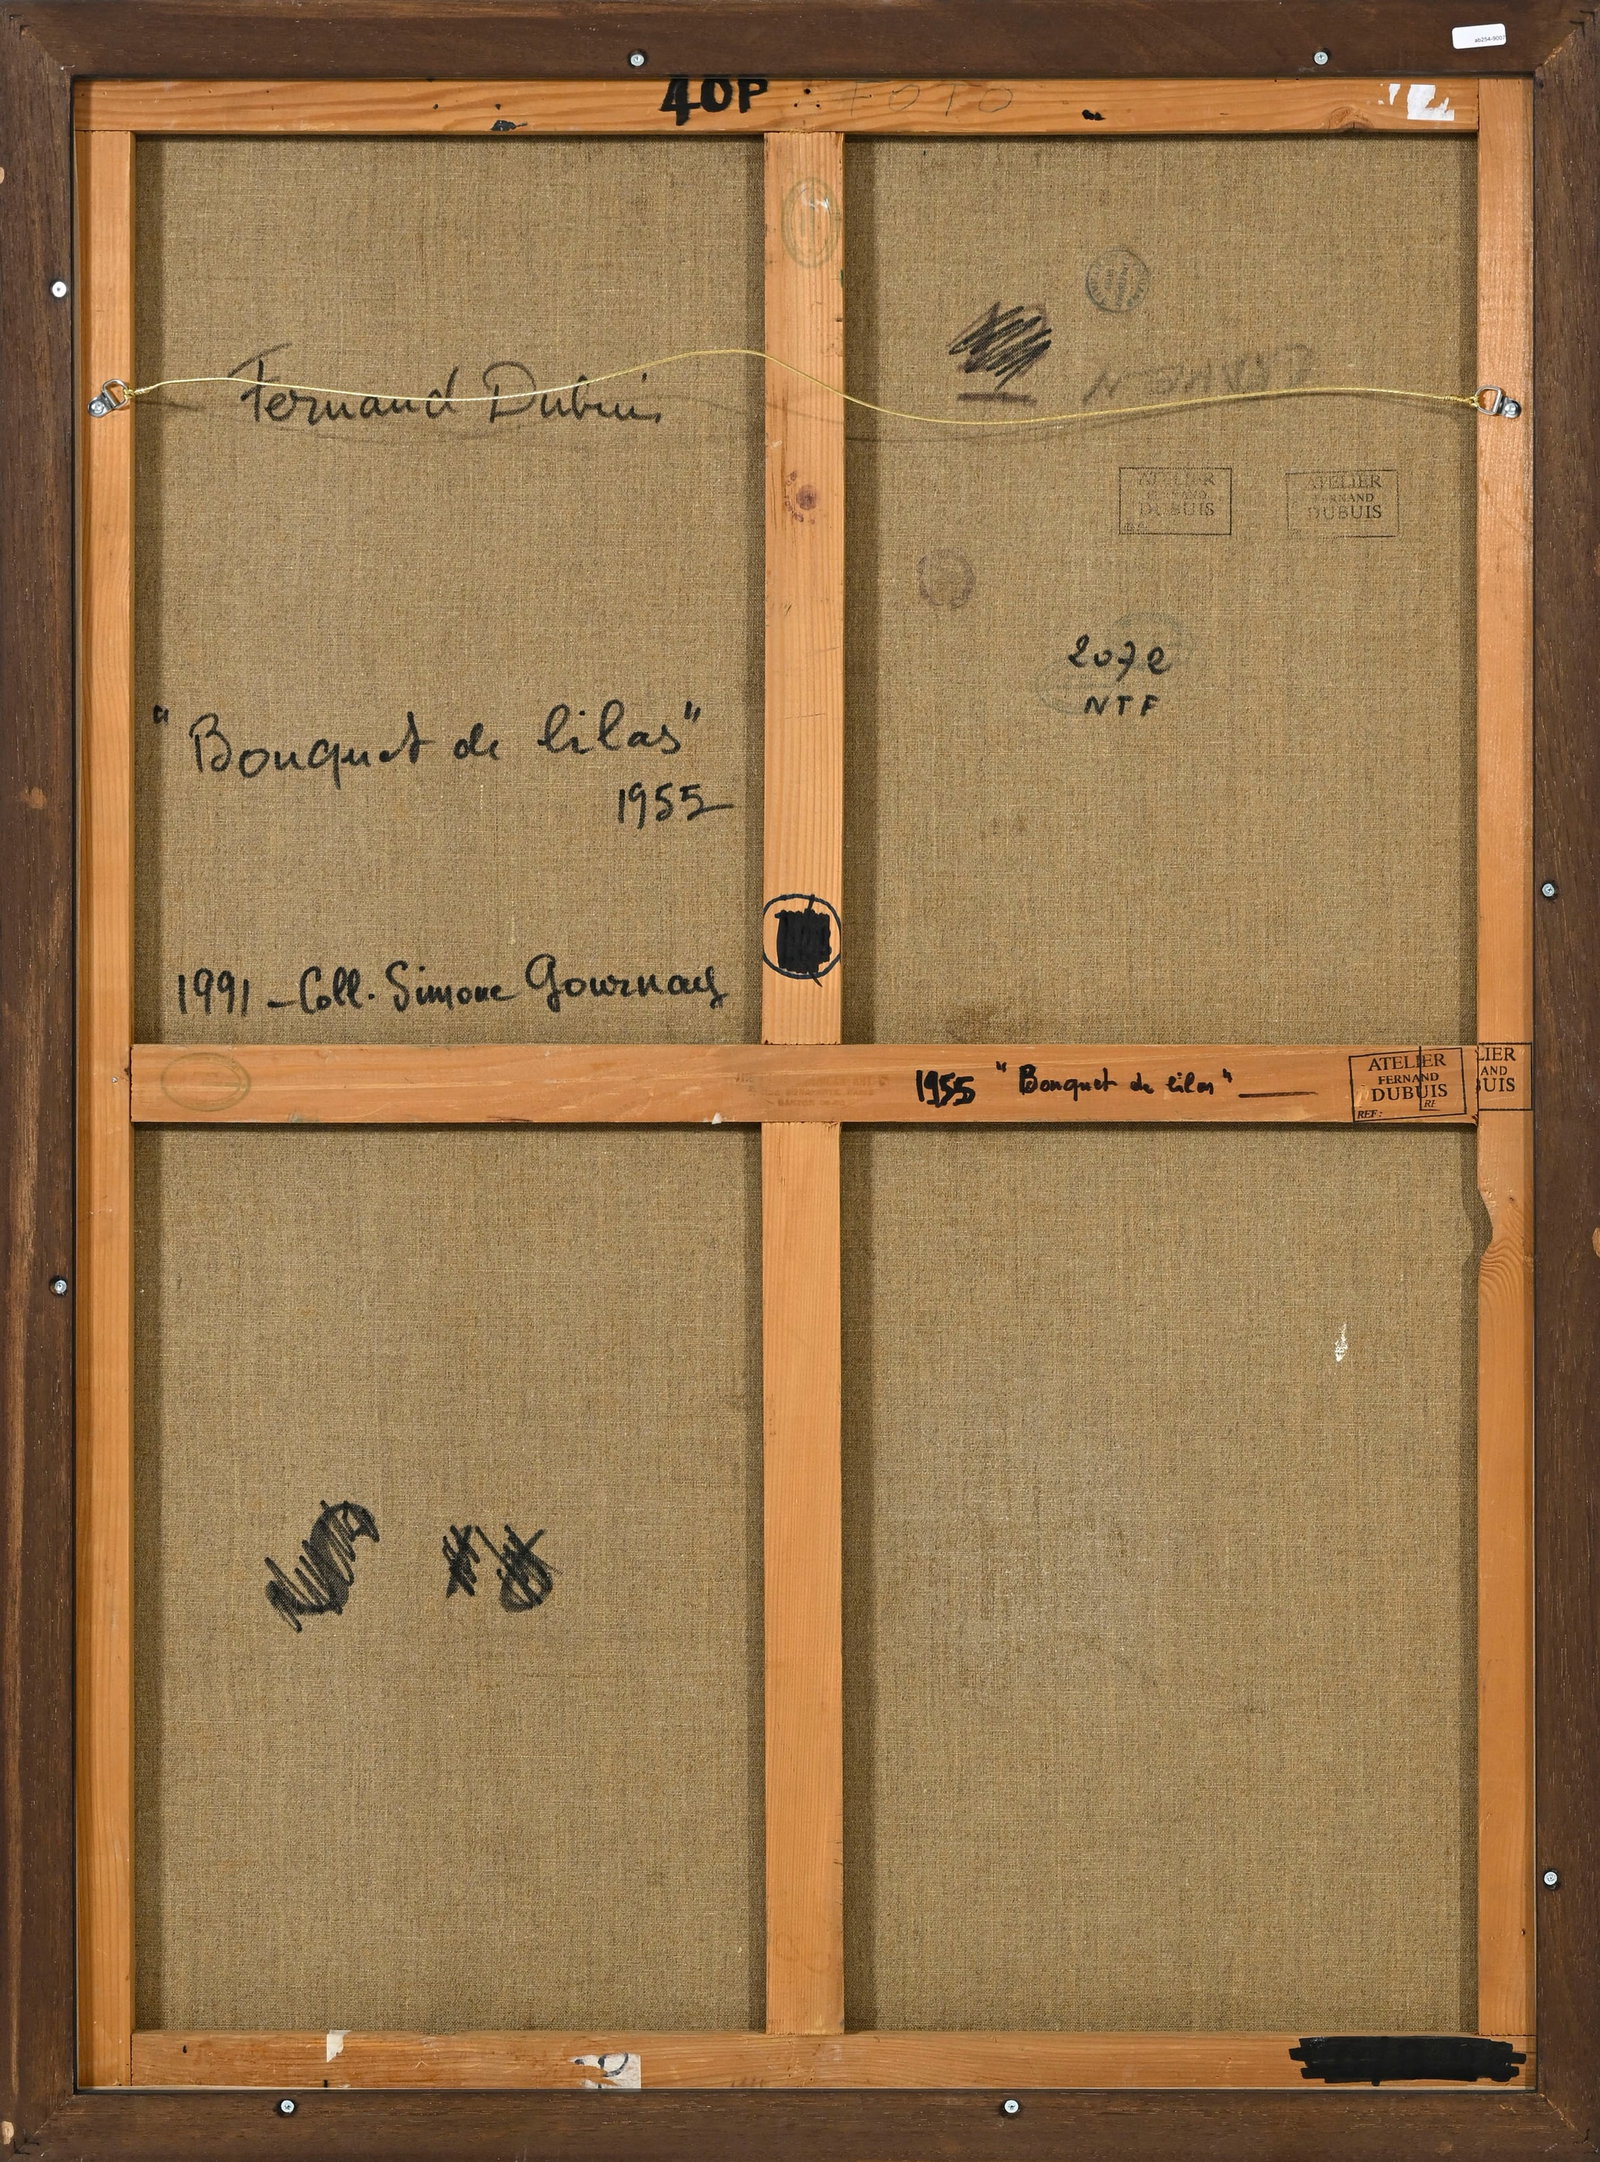 ab254-9007
40P FOTO
Fernand Dubuis
ATELIER
FERNAND
DUBUIS
ATELIER
FERNAND
DUBUIS
2072
NTF
"Bouquet de lilas"
1955
1991 - Coll. Simone Gournay
1955 "Bouquet de lilas"
ATELIER
FERNAND
DUBUIS
REF:
LIER
AND
UIS